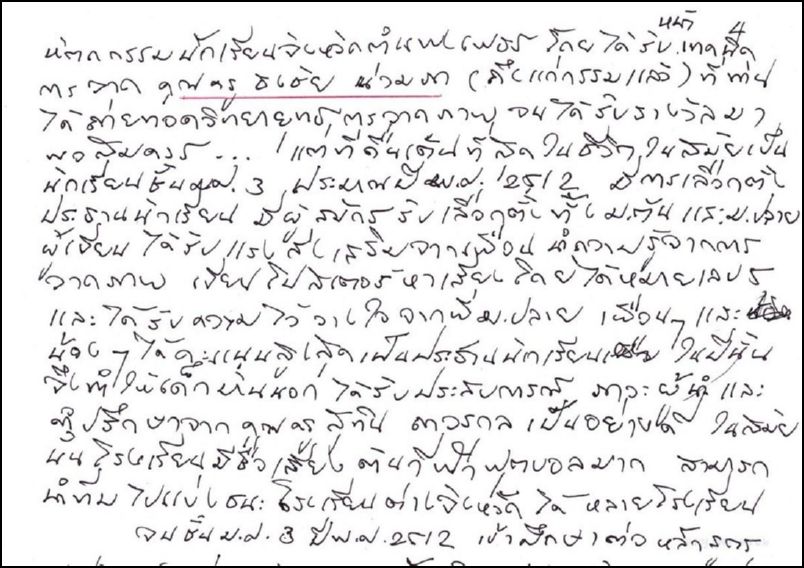 หน้า 4
หัตถกรรมนักเรียนจังหวัดกำแพงเพชร โดยได้รับเทคนิค
การวาด คุณครู ธงชัย น่วมภา (ถึงแก่กรรมแล้ว) ที่ท่าน
ได้ถ่ายทอดวิทยายุทธการวาดภาพ จนได้รับรางวัลมา
พอสมควร ... แต่ที่ตื่นเต้นที่สุดในชีวิต ในสมัยเป็น
นักเรียนชั้นม.ศ. 3 ประมาณปี พ.ศ. 2512 มีการเลือกตั้ง
ประธานนักเรียน มีผู้สมัครรับเลือกตั้งทั้งม.ต้นและม.ปลาย
ผู้เขียนได้รับแรงส่งเสริมจากเพื่อน นำความรู้จากการ
วาดภาพ เขียนโปสเตอร์หาเสียง โดยได้หมายเลข
และได้รับความไว้วางใจจากพี่ม.ปลาย เพื่อนๆ และ
น้องๆ ได้คะแนนสูงสุดเป็นประธานนักเรียน ในปีนั้น
จึงทำให้เด็ก ได้รับประสบการณ์ ภาวะผู้นำ และ
ที่ปรึกษาจาก คุณครู ถาวรกล เป็นอย่างดี ในสมัย
นั้นโรงเรียนมีชื่อเสียงด้านกีฬาฟุตบอลมาก สามารถ
นำทีมไปแข่งชนะโรงเรียนต่างจังหวัดได้หลายโรงเรียน
จบชั้นม.ศ. 3 ปีพ.ศ. 2512 เข้าศึกษาต่อ หลักสูตร